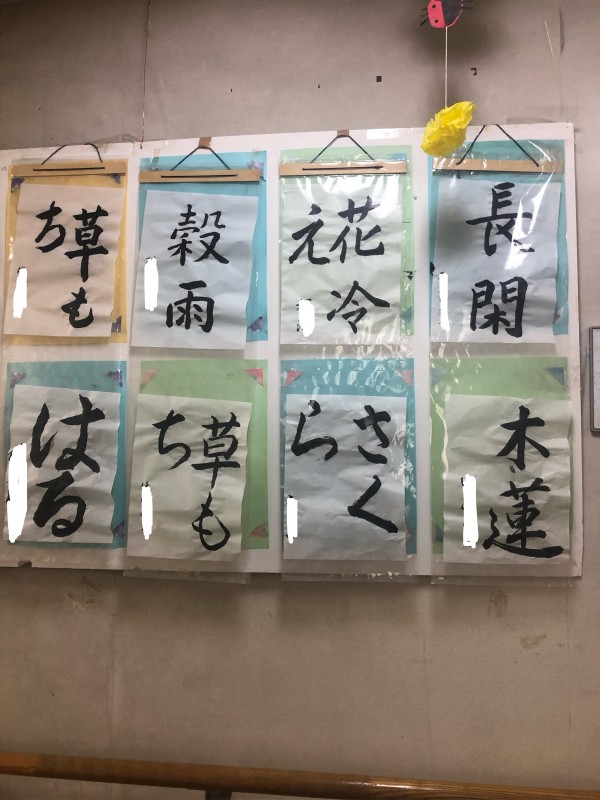 長閑
花冷
え
穀雨
草も
ち
木蓮
さく
ら
草も
ち
はる